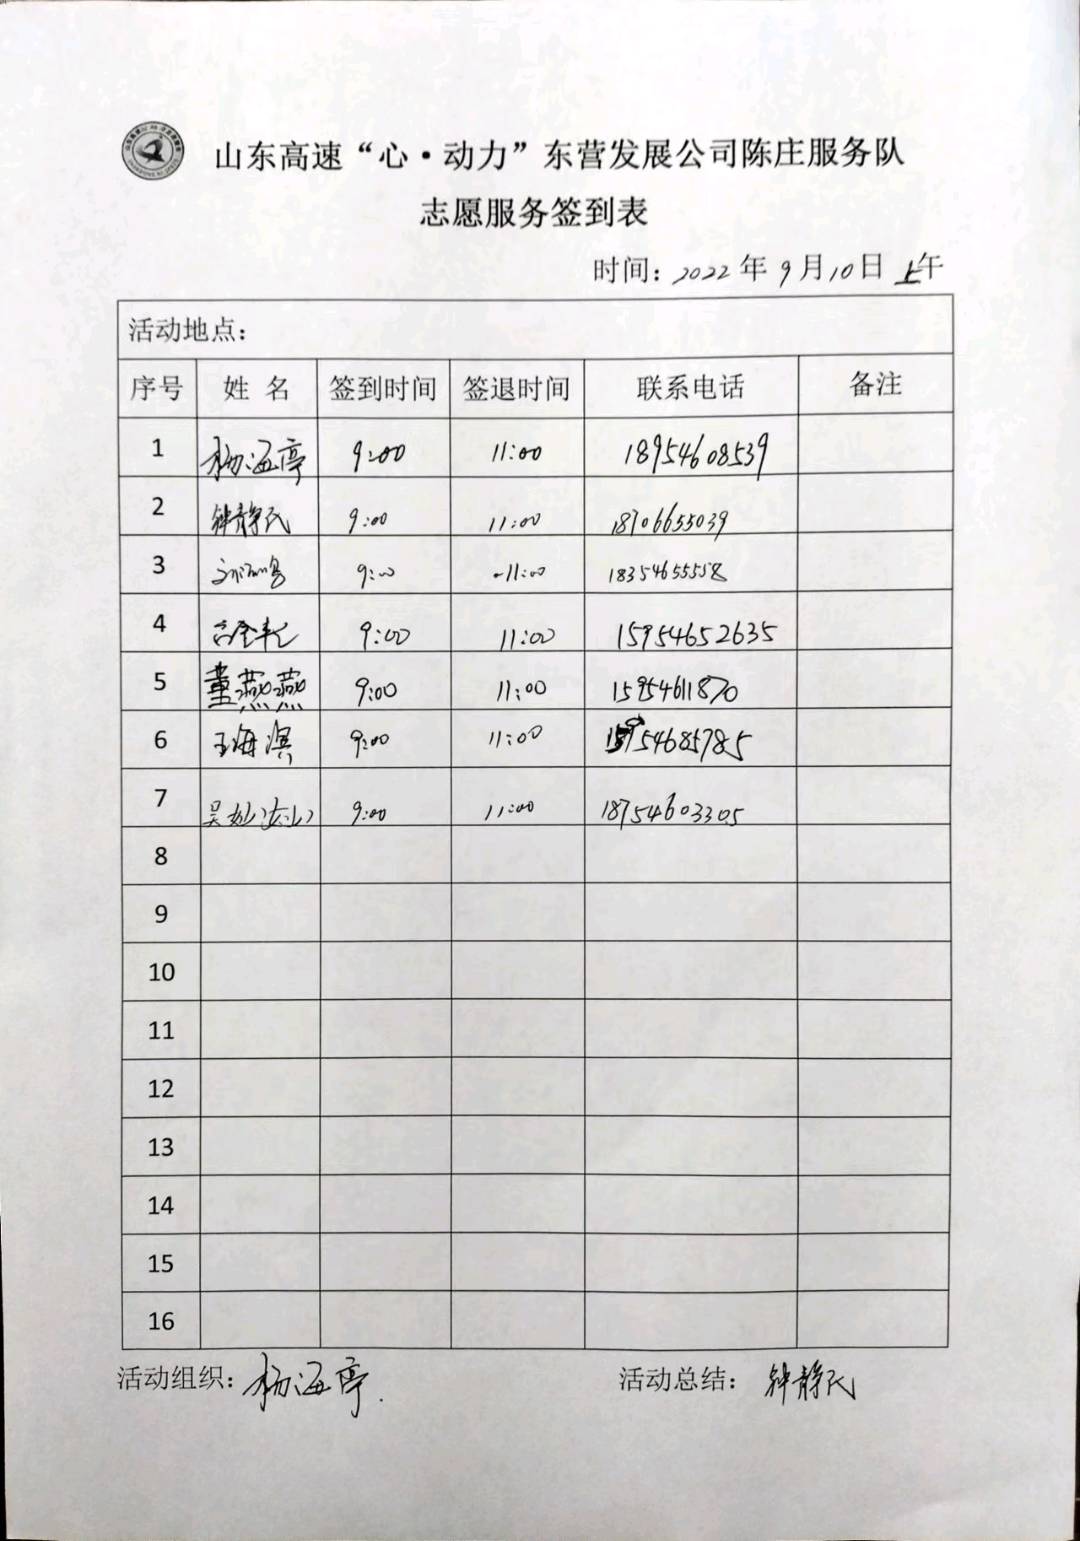 山东高速“心·动力”东营发展公司陈庄服务队
志愿服务签到表
时间：2022年9月10日 上午
活动地点：
序号 姓 名 签到时间 签退时间 联系电话 备注
1 杨海亭 9:00 11:00 18954608539
2 钟静民 9:00 11:00 18706655039
3 9:00 11:00 18354655558
4 9:00 11:00 15954652635
5 董燕燕 9:00 11:00 15954611870
6 王海滨 9:00 11:00 15954685785
7 吴 9:00 11:00 18754603305
8
9
10
11
12
13
14
15
16
活动组织：杨海亭 活动总结：钟静民